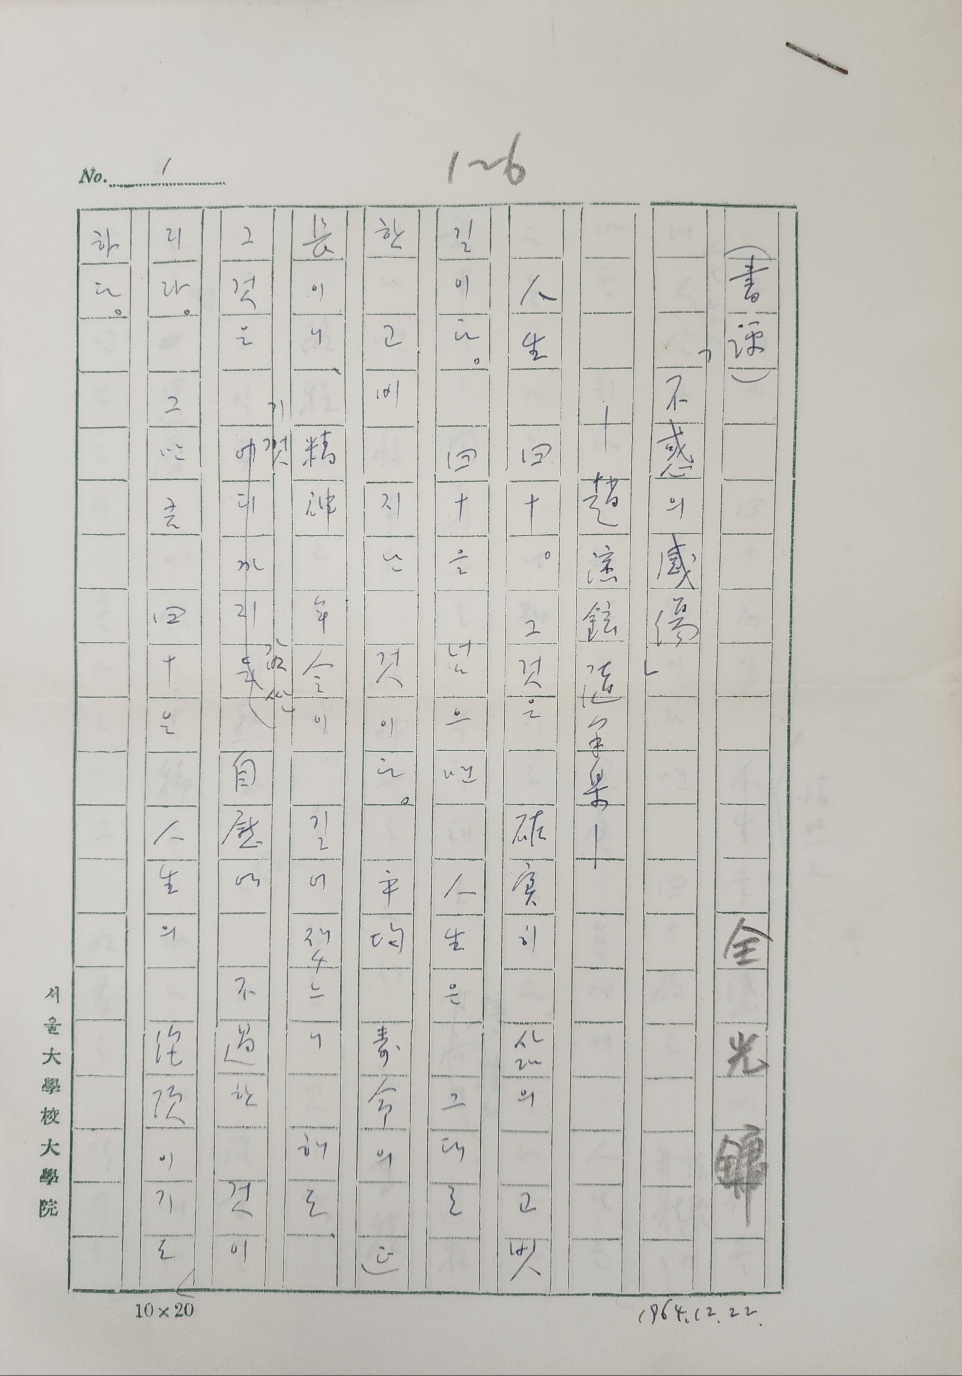 No. 1
1~6
(書評)
全光鏞
「不惑의 感傷」
—趙演鉉 随筆集—
人生 四十。 그것은 確實히 삶의 고빗
길이다. 四十을 넘으면 人生은 그대로
한 고비 지난 것이다. 平均 壽命의 延
長이니, 精神 年令이 길어졌느니 해도
그것은 기껏 自慰에 不過한 것이
리라. 그만큼 四十은 人生의 絶頂이기도
하다.
서울大學校大學院
10×20
1964.12.22.